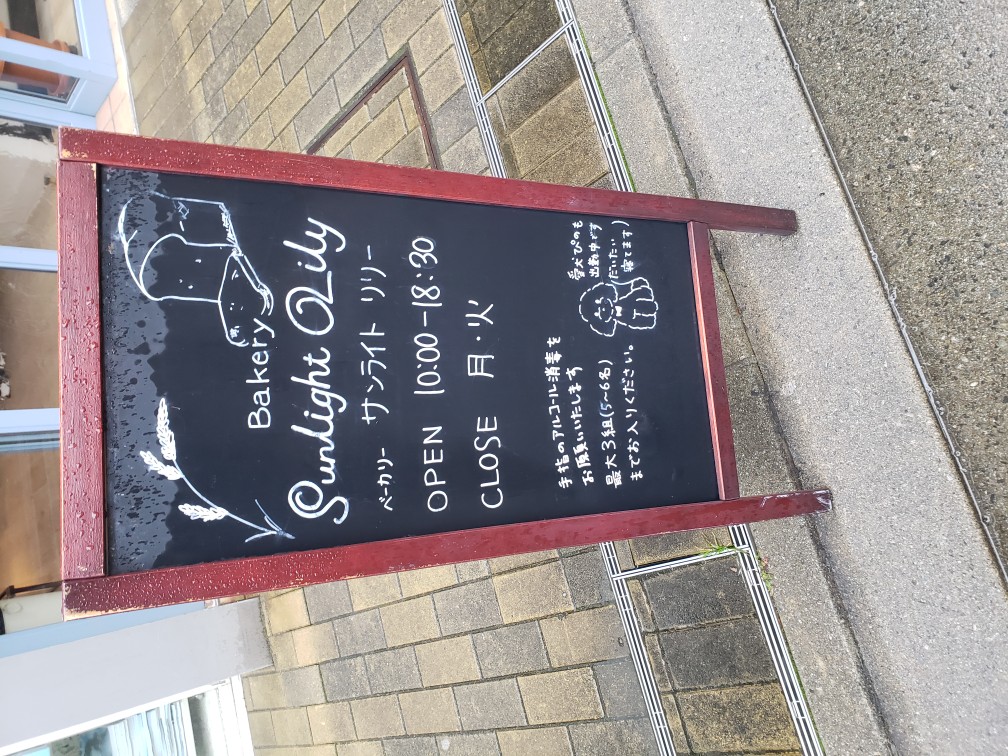 Bakery
Sunlight Lily
ベーカリー サンライト リリー
OPEN 10:00-18:30
CLOSE 月・火
手指のアルコール消毒を
お願いいたします
最大3組(5~6名)
までお入りください。
愛犬ぴのも
出勤中です
(だいたい
寝てます)